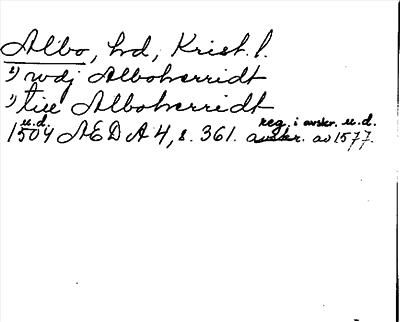 Albo, hd, Krist. l.
1) wdj Alboherridt
1) tiil Alboherridt
u.d. reg. i avskr. u.d.
1504 AEDA 4, s. 361. avskr. av 1577.